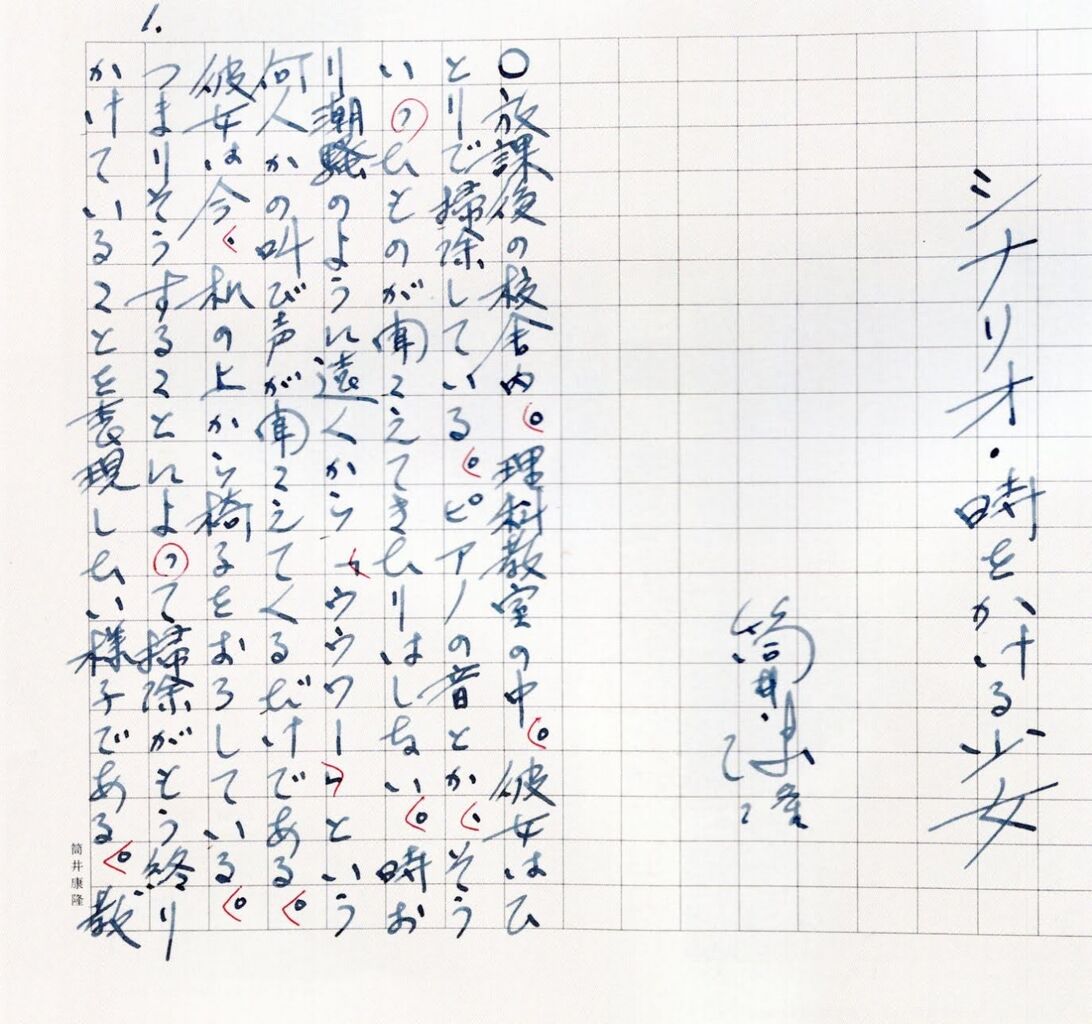 シナリオ・時をかける少女
筒井康隆
〇放課後の校舎内。理科教室の中。彼女はひ
とりで掃除している。ピアノの音とか、そう
いったものが聞こえてきたりはしない。時お
り潮騒のように遠くから「ウウウワー」という
何人かの叫び声が聞こえてくるだけである。
彼女は今、机の上から椅子をおろしている。
つまりそうすることによって掃除がもう終り
かけていることを表現したい様子である。教
1.
筒井康隆